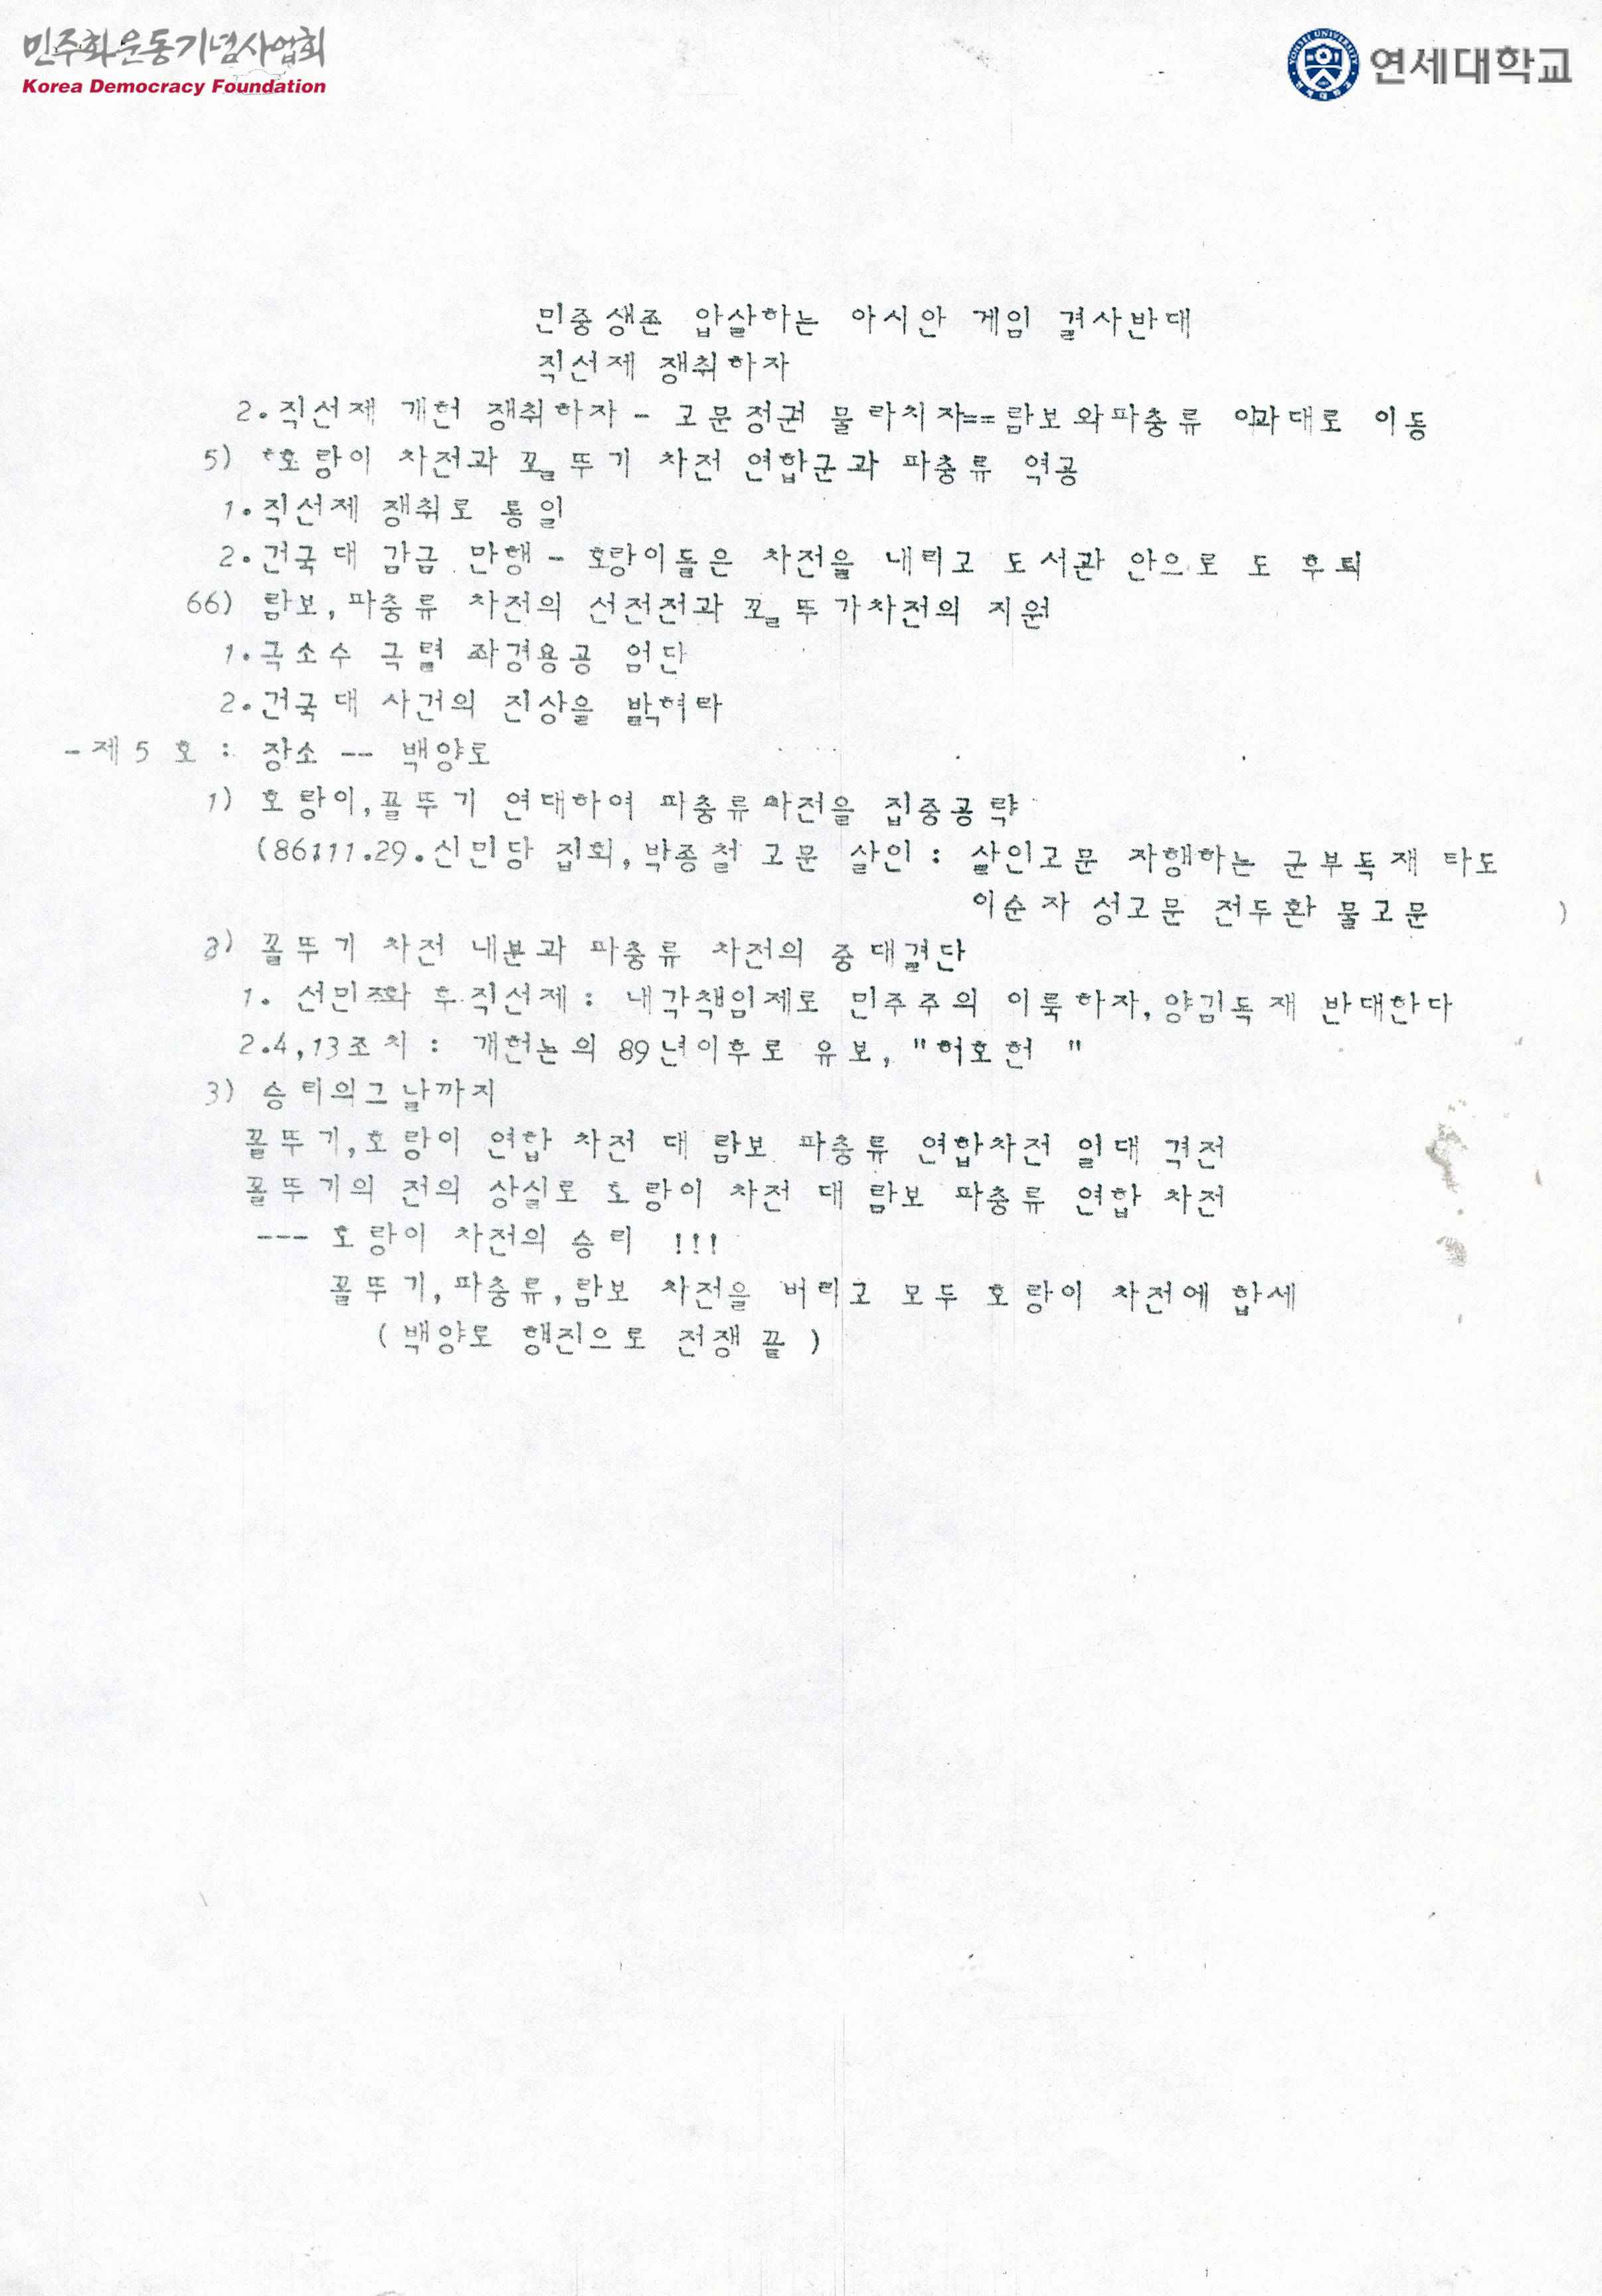 민주화운동기념사업회
Korea Democracy Foundation
연세대학교
민중생존 압살하는 아시안 게임 결사반대
직선제 쟁취하자
2.직선제 개헌 쟁취하자 - 고문정권 물라치자==람보와파충류 이과대로 이동
5) 호랑이 차전과 꼴뚜기 차전 연합군과 파충류 역공
1.직선제 쟁취로 통일
2.건국대 감금 만행 - 호랑이들은 차전을 내리고 도서관 안으로 도 후퇴
66) 람보,파충류 차전의 선전전과 꼴뚜가차전의 지원
1.극소수 극렬 좌경용공 엄단
2.건국대 사건의 진상을 밝혀라
-제5호 : 장소 -- 백양로
1) 호랑이,꼴뚜기 연대하여 파충류차전을 집중공략
(86.11.29.신민당 집회,박종철 고문 살인 : 살인고문 자행하는 군부독재 타도
이순자 성고문 전두환 물고문 )
2) 꼴뚜기 차전 내분과 파충류 차전의 중대결단
1. 선민주화 후직선제 : 내각책임제로 민주주의 이룩하자,양김독재 반대한다
2.4,13조치 : 개헌논의 89년이후로 유보, "허호헌 "
3) 승리의그날까지
꼴뚜기,호랑이 연합 차전 대 람보 파충류 연합차전 일대 격전
꼴뚜기의 전의 상실로 호랑이 차전 대 람보 파충류 연합 차전
--- 호랑이 차전의 승리 !!!
꼴뚜기,파충류,람보 차전을 버리고 모두 호랑이 차전에 합세
(백양로 행진으로 전쟁 끝 )